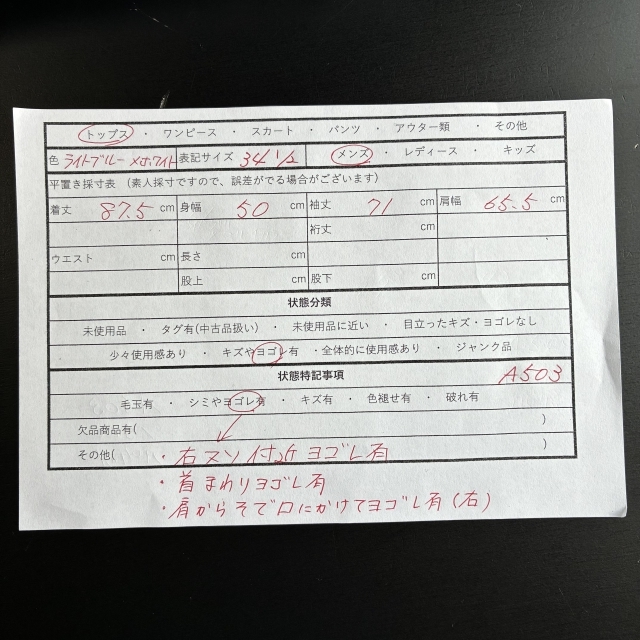 トップス ・ ワンピース ・ スカート ・ パンツ ・ アウター類 ・ その他
色 ライトブルー×ホワイト 表記サイズ 34 1/2 メンズ ・ レディース ・ キッズ
平置き採寸表 (素人採寸ですので、誤差がでる場合がございます)
着丈 87.5 cm 身幅 50 cm 袖丈 71 cm 肩幅 65.5 cm
裄丈 cm
ウエスト cm 長さ cm
股上 cm 股下 cm
状態分類
未使用品 ・ タグ有(中古品扱い) ・ 未使用品に近い ・ 目立ったキズ・ヨゴレなし
少々使用感あり ・ キズやヨゴレ有 ・全体的に使用感あり ・ ジャンク品
状態特記事項 A503
毛玉有 ・ シミやヨゴレ有 ・ キズ有 ・ 色褪せ有 ・ 破れ有
欠品商品有( )
その他( ・右スソ付近ヨゴレ有 )
・首まわりヨゴレ有
・肩からそで口にかけてヨゴレ有(右)